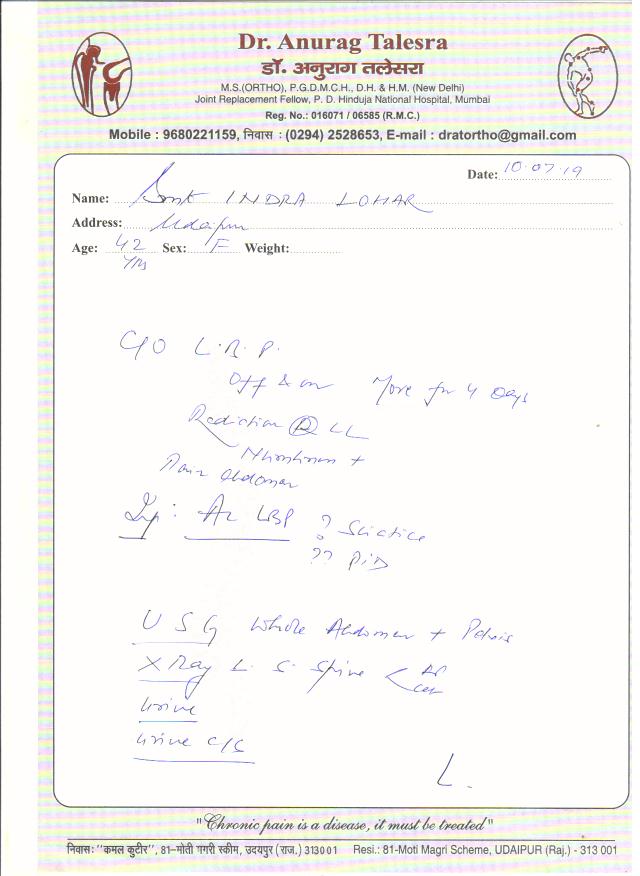 Dr. Anurag Talesra
डॉ. अनुराग तलेसरा
M.S.(ORTHO), P.G.D.M.C.H., D.H. & H.M. (New Delhi)
Joint Replacement Fellow, P. D. Hinduja National Hospital, Mumbai
Reg. No.: 016071 / 06585 (R.M.C.)
Mobile : 9680221159, निवास : (0294) 2528653, E-mail : dratortho@gmail.com
Date: 10.07.19
Name: Smt INDRA LOHAR
Address: Udaipur
Age: 42 Yrs Sex: F Weight:
C/O L.B.P.
Off & on More for 4 Days
Radiation (R) LL
Numbness +
Pain Abdomen
Imp: Ac LBP ? Sciatica
?? PID
USG Whole Abdomen + Pelvis
X Ray L. S. Spine < AP
Urine
Urine C/S
"Chronic pain is a disease, it must be treated"
निवास: "कमल कुटीर", 81-मोती मगरी स्कीम, उदयपुर (राज.) 313001 Resi.: 81-Moti Magri Scheme, UDAIPUR (Raj.) - 313 001